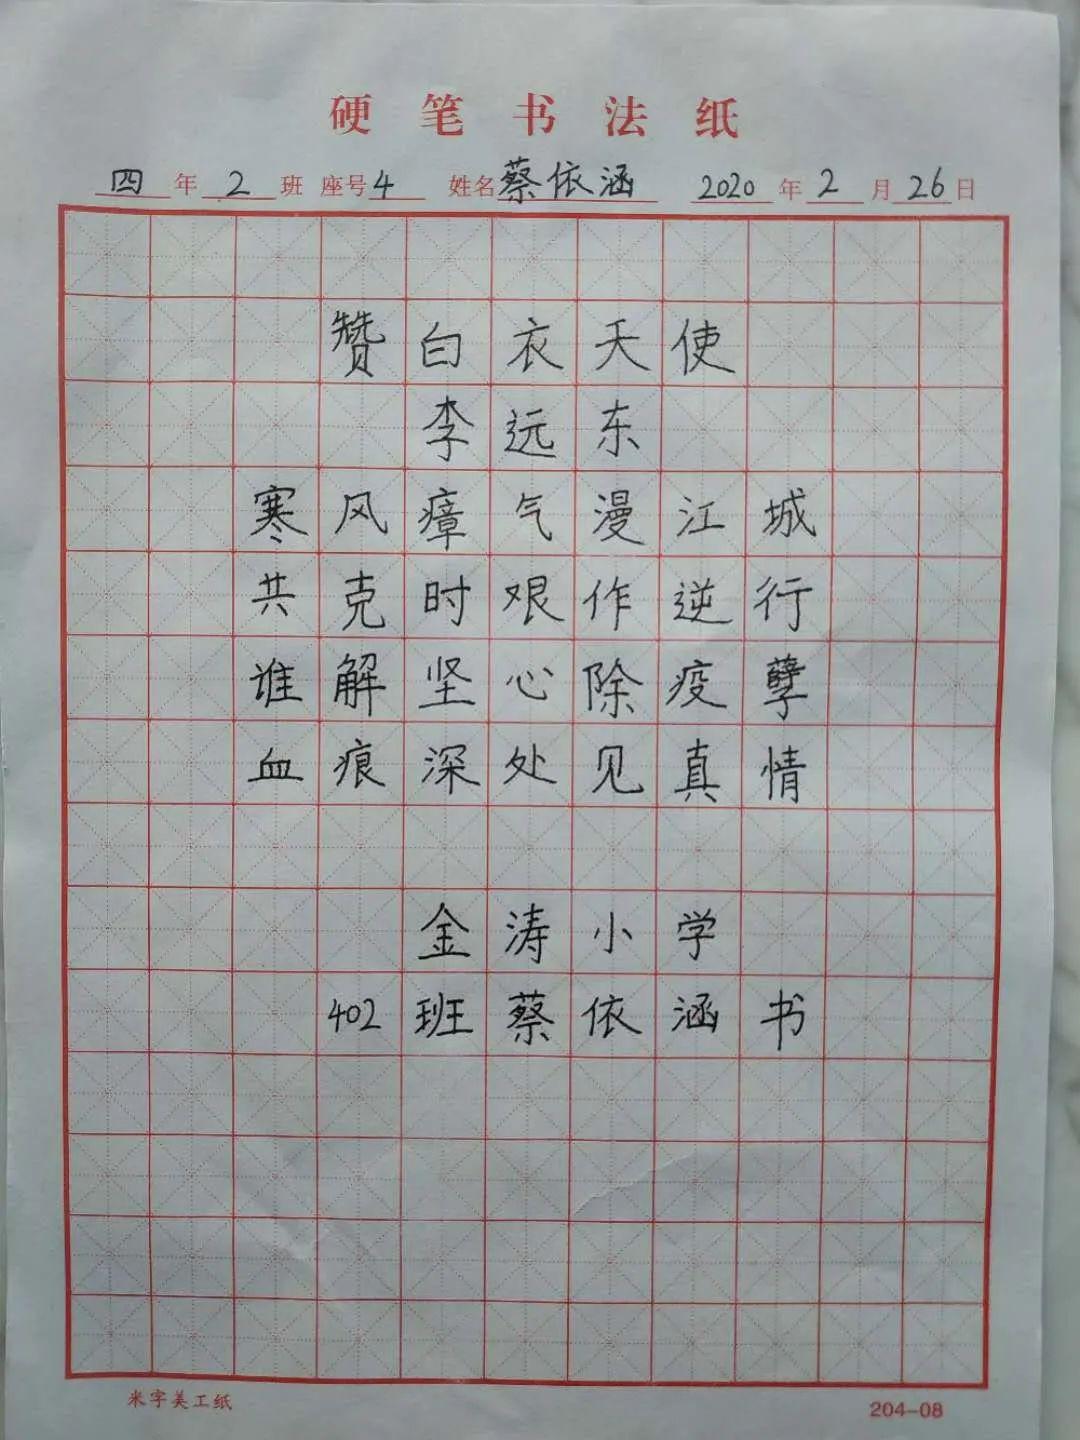 硬笔书法纸
四年2班 座号4 姓名蔡依涵 2020年2月26日
赞白衣天使
李远东
寒风瘴气漫江城
共克时艰作逆行
谁解坚心除疫孽
血痕深处见真情
金涛小学
402班蔡依涵书
米字美工纸 204-08